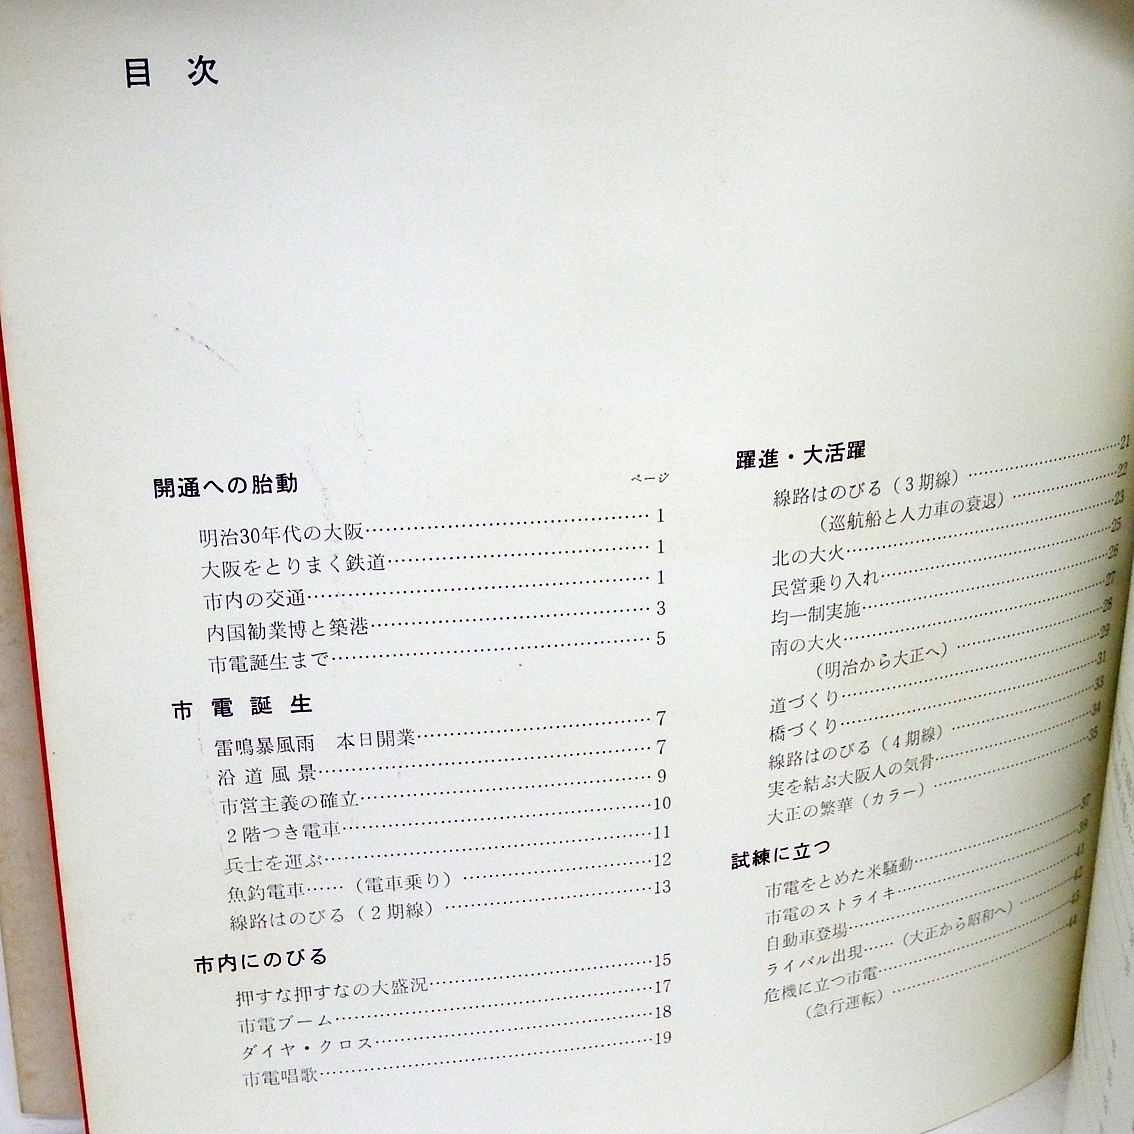 目 次
開通への胎動
ページ
明治30年代の大阪……1
大阪をとりまく鉄道……1
市内の交通……1
内国勧業博と築港……3
市電誕生まで……5
市電誕生
雷鳴暴風雨　本日開業……7
沿道風景……7
市営主義の確立……9
2階つき電車……10
兵士を運ぶ……11
魚釣電車……（電車乗り）……12
線路はのびる（2期線）……13
市内にのびる
押すな押すなの大盛況……15
市電ブーム……17
ダイヤ・クロス……18
市電唱歌……19
躍進・大活躍
線路はのびる（3期線）……21
（巡航船と人力車の衰退）……22
北の大火……23
民営乗り入れ……25
均一制実施……26
南の大火……27
（明治から大正へ）……28
道づくり……29
橋づくり……31
線路はのびる（4期線）……33
実を結ぶ大阪人の気骨……34
大正の繁華（カラー）……35
試練に立つ
市電をとめた米騒動……37
市電のストライキ……39
自動車登場……41
ライバル出現……（大正から昭和へ）……42
危機に立つ市電……43
（急行運転）……44